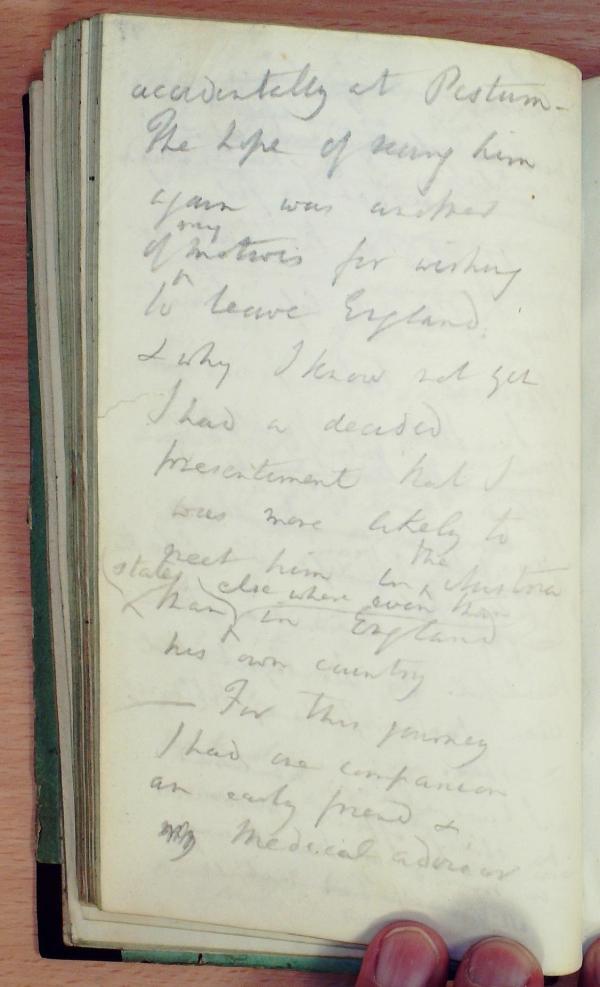 accidentally at Pestum -
The hope of seeing him
again was another
my
of motives for wishing
to leave England.
& why I know not yet
I had a decided
presentiment that I
was more likely to
the
meet him in Austria
states else where even than
than in England
his own country
— For this journey
I had one companion
an early friend &
my Medical advisor